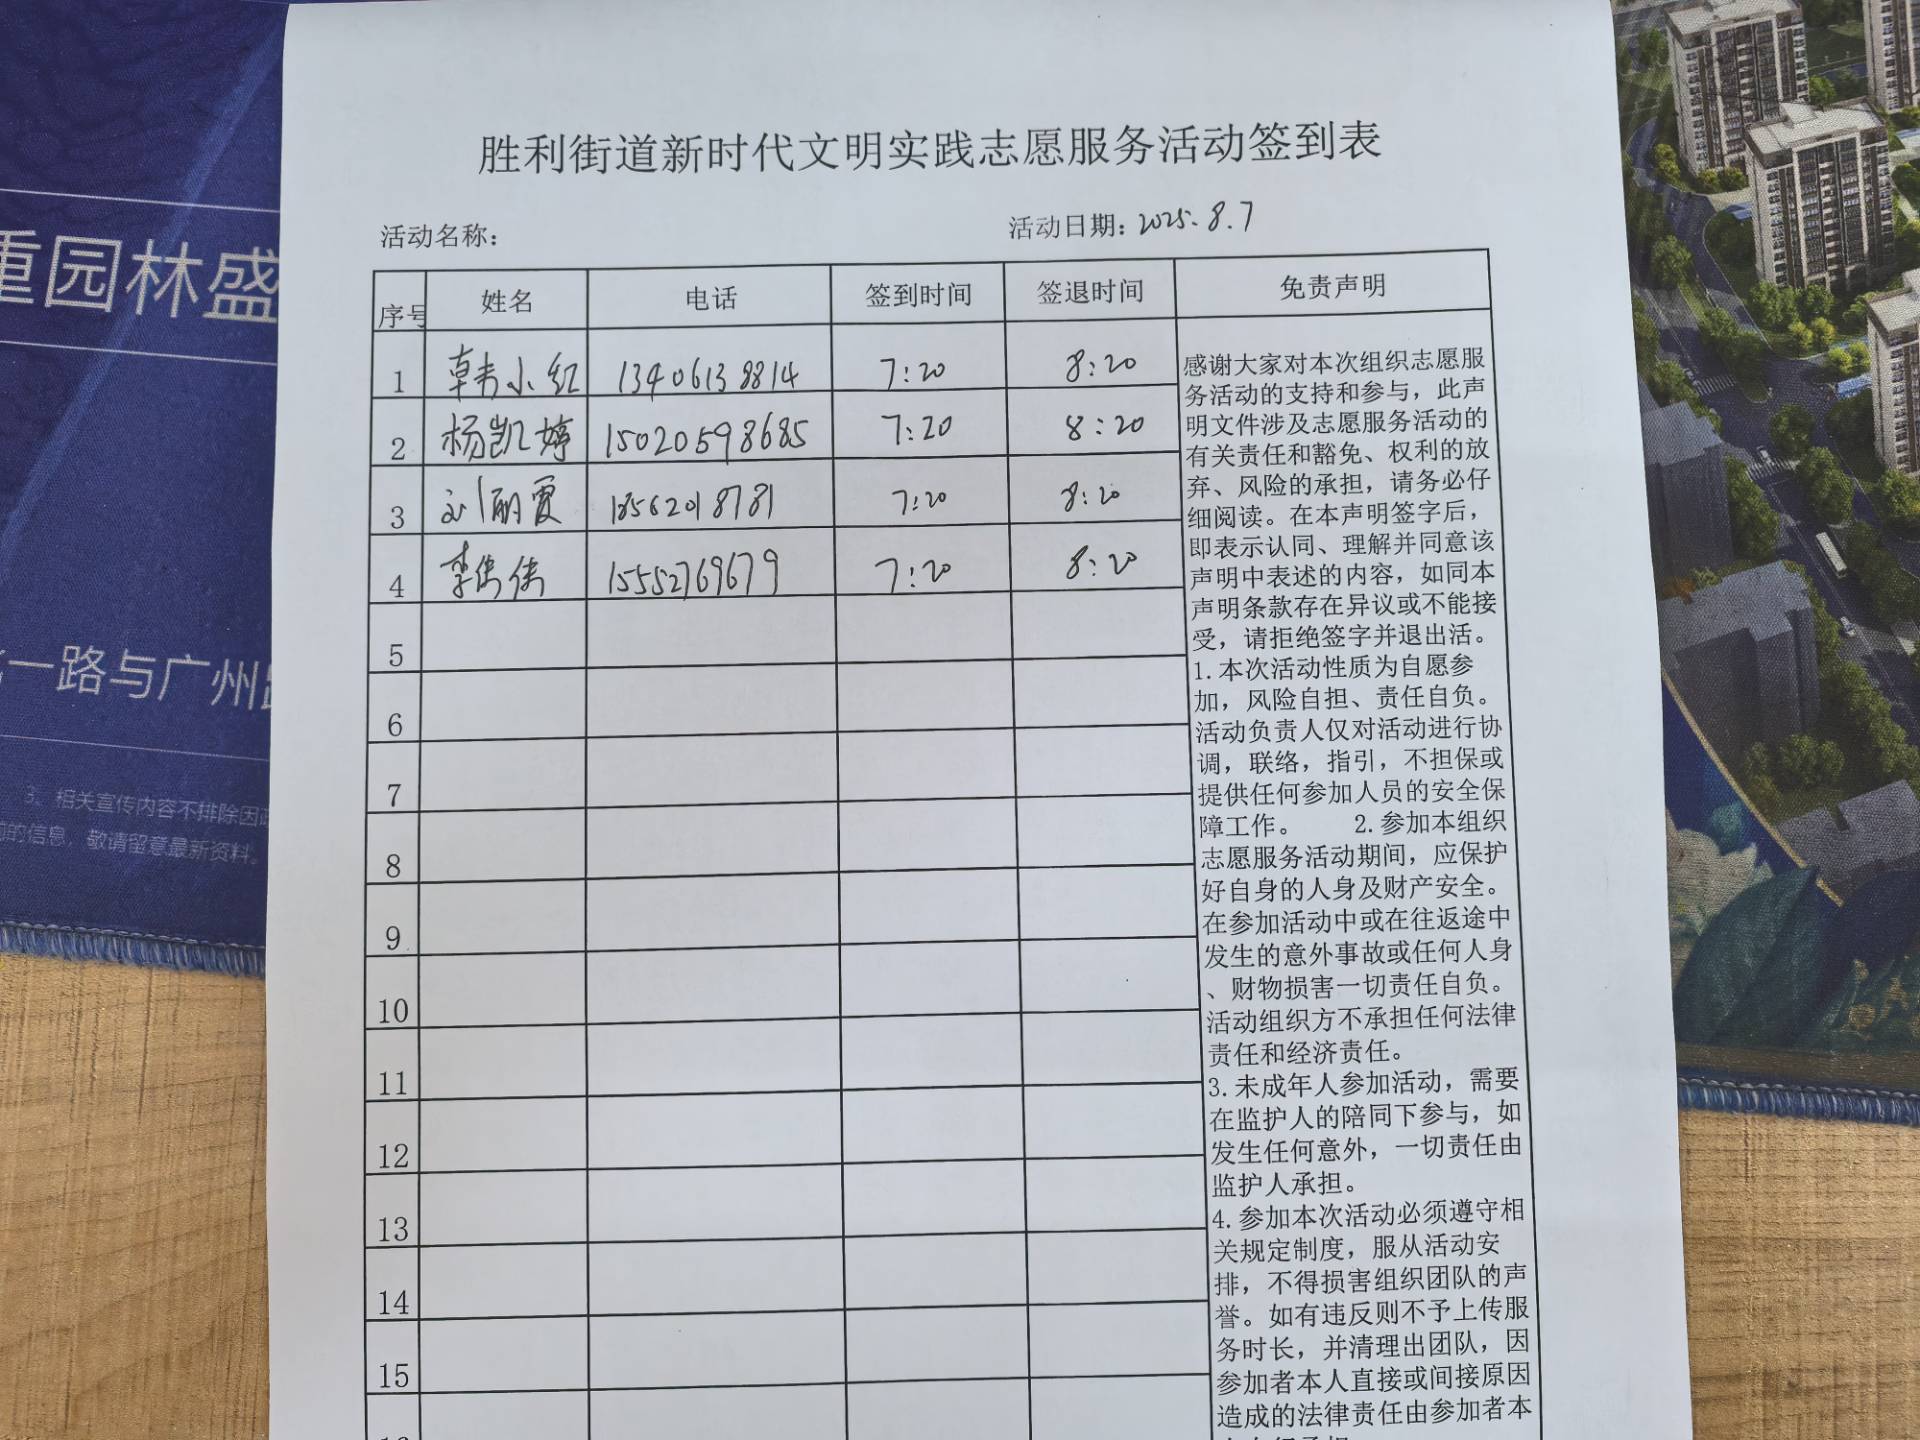 胜利街道新时代文明实践志愿服务活动签到表
活动名称：
活动日期：2025.8.7
序号 姓名 电话 签到时间 签退时间 免责声明
1 韩小红 13406138814 7:20 8:20
2 杨凯婷 15020598685 7:20 8:20
3 刘丽霞 18562018781 7:20 8:20
4 李倩倩 15552769679 7:20 8:20
5
6
7
8
9
10
11
12
13
14
15
感谢大家对本次组织志愿服
务活动的支持和参与，此声
明文件涉及志愿服务活动的
有关责任和豁免、权利的放
弃、风险的承担，请务必仔
细阅读。在本声明签字后，
即表示认同、理解并同意该
声明中表述的内容，如同本
声明条款存在异议或不能接
受，请拒绝签字并退出活。
1.本次活动性质为自愿参
加，风险自担、责任自负。
活动负责人仅对活动进行协
调，联络，指引，不担保或
提供任何参加人员的安全保
障工作。 2.参加本组织
志愿服务活动期间，应保护
好自身的人身及财产安全。
在参加活动中或在往返途中
发生的意外事故或任何人身
、财物损害一切责任自负。
活动组织方不承担任何法律
责任和经济责任。
3.未成年人参加活动，需要
在监护人的陪同下参与，如
发生任何意外，一切责任由
监护人承担。
4.参加本次活动必须遵守相
关规定制度，服从活动安
排，不得损害组织团队的声
誉。如有违反则不予上传服
务时长，并清理出团队，因
参加者本人直接或间接原因
造成的法律责任由参加者本
重园林盛
一路与广州路
3、相关宣传内容不排除因政
前的信息，敬请留意最新资料。